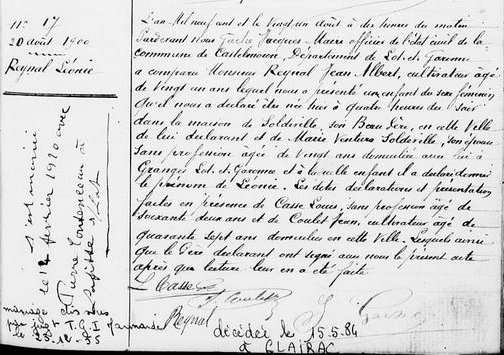 N° 17
20 août 1900
Reynal Léonie
L'an Mil neuf cent et le Vingt un août à dix heures du matin
Pardevant Nous Jacques Maire officier de l'état civil de la
commune de Castelmoron, Département de Lot et Garonne
a comparu Monsieur Reynal Jean Albert, cultivateur âgé
de Vingt un ans lequel nous a présenté un enfant du sexe féminin
qu'il nous a déclaré être né hier à quatre heures du soir
dans la maison de Solderville, son Beau Père, en cette Ville
de lui déclarant et de Marie Ventura Solderville, son épouse
sans profession âgée de vingt ans domiciliée avec lui à
Granges Lot et Garonne et à la quelle enfant il a déclaré donner
le prénom de Léonie. Les dites déclaration et présentation
faites en présence de Casse Louis, sans profession âgé de
soixante deux ans et de Coulet Jean, cultivateur âgé de
quarante sept ans domiciliés en cette Ville. Lesquels ainsi
que le Père déclarant ont signé avec nous le présent acte
après que lecture leur en a été faite
L. Casse
J. Coulet
Reynal
décédée le 15.5.84
à CLAIRAC
le 12 février 1920 avec
Pierre
mariage
25-12-85